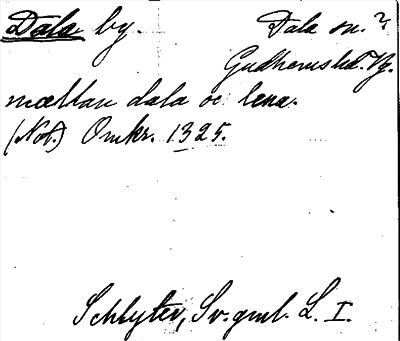 Dala by. Dala sn.?
Gudhems hd. Vg.
mællan dala oc lena.
(Not.) Omkr. 1325.
Schlyter, Sv. gml. L. I.